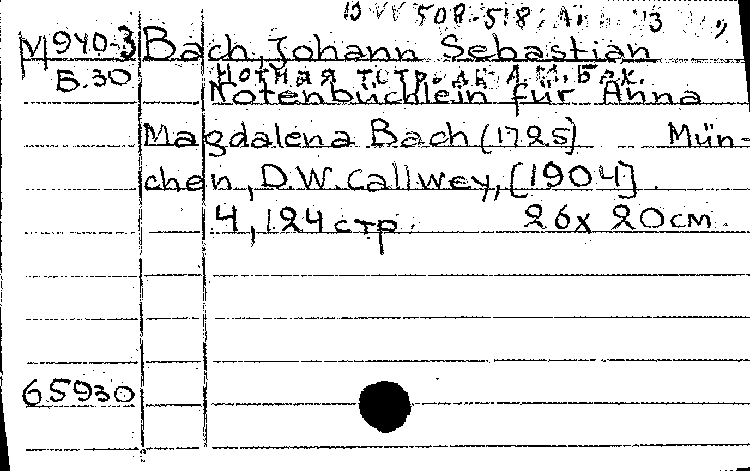 BWV 508-518;
М940-3 Bach, Johann Sebastian
Б.30 Нотная тетр. дк А.М. Бах.
Notenbüchlein für Anna
Magdalena Bach (1725) Mün-
chen, D.W. Callwey, [1904].
4, 124 стр. 26x20см.
65930